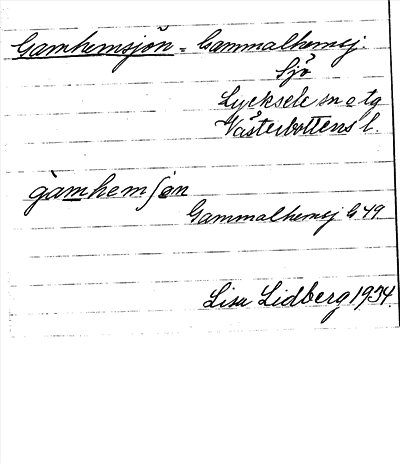 Gamhemsjön = Gammalhemsj.
Sjö
Lycksele sn o tg
Västerbottens l.
gàmhemʃɵn
Gammalhemsj G 49
Lisa Lidberg 1934.